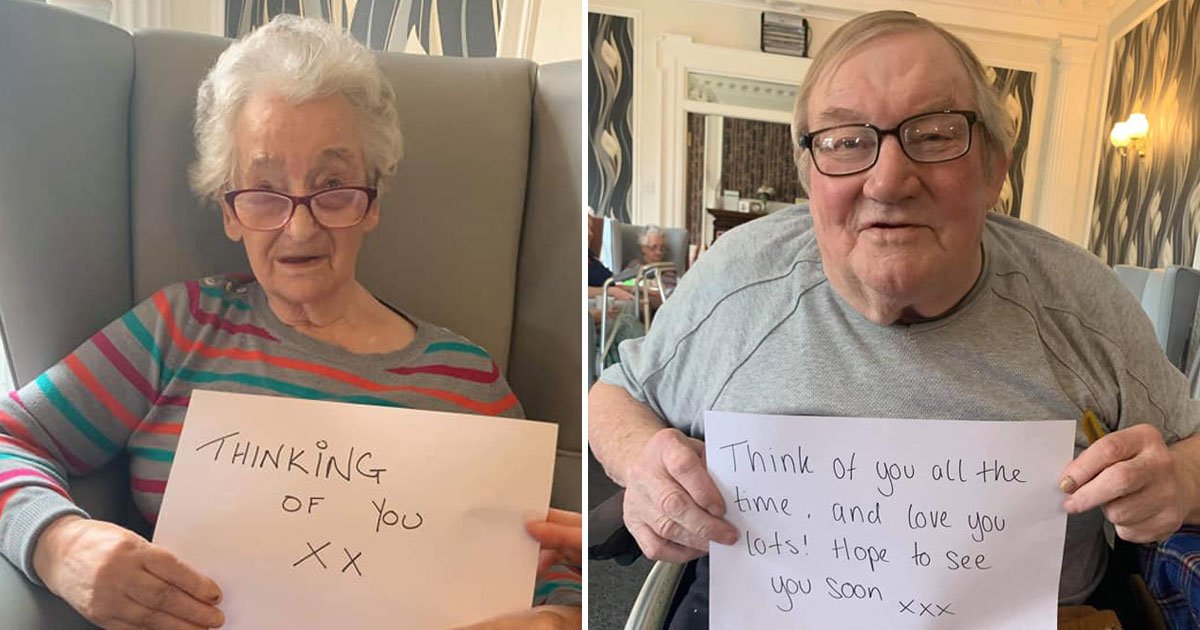 THINKING
OF YOU
XX
Think of you all the
time, and love you
lots! Hope to see
you soon xxx